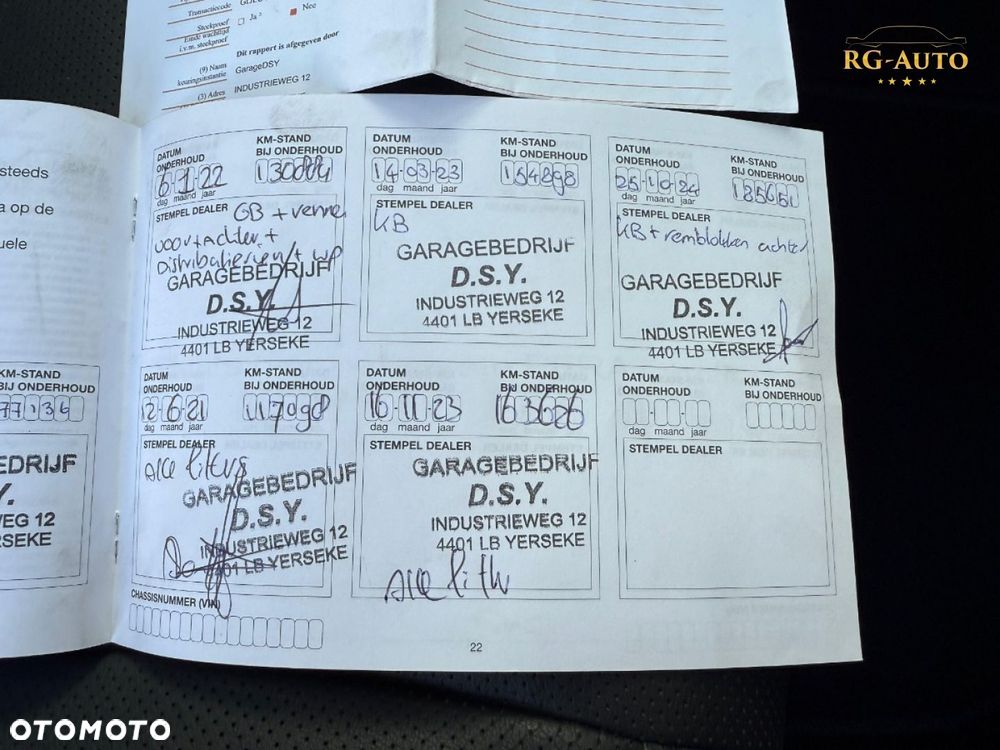 Transactiecode
Steekproef
Einde wachttijd
i.v.m. steekproef
Ja
Nee
Dit rapport is afgegeven door
(9) Naam
keuringsinstantie
GarageDSY
(3) Adres
INDUSTRIEWEG 12
RG-AUTO
steeds
a op de
uele
KM-STAND
BIJ ONDERHOUD
77136
EDRIJF
Y.
EG 12
RSEKE
DATUM
ONDERHOUD
KM-STAND
BIJ ONDERHOUD
6 1 22
dag maand jaar
STEMPEL DEALER
GB + remmen
voor + achter +
Distributieriem + wp
GARAGEBEDRIJF
D.S.Y.
INDUSTRIEWEG 12
4401 LB YERSEKE
DATUM
ONDERHOUD
KM-STAND
BIJ ONDERHOUD
14-03-23
154898
dag maand jaar
STEMPEL DEALER
KB
GARAGEBEDRIJF
D.S.Y.
INDUSTRIEWEG 12
4401 LB YERSEKE
DATUM
ONDERHOUD
KM-STAND
BIJ ONDERHOUD
25-10-24
185651
dag maand jaar
STEMPEL DEALER
KB + remblokken achter
GARAGEBEDRIJF
D.S.Y.
INDUSTRIEWEG 12
4401 LB YERSEKE
DATUM
ONDERHOUD
KM-STAND
BIJ ONDERHOUD
12-6-21
dag maand jaar
STEMPEL DEALER
alle filters
GARAGEBEDRIJF
D.S.Y.
INDUSTRIEWEG 12
4401 LB YERSEKE
DATUM
ONDERHOUD
KM-STAND
BIJ ONDERHOUD
16-11-23
163626
dag maand jaar
STEMPEL DEALER
GARAGEBEDRIJF
D.S.Y.
INDUSTRIEWEG 12
4401 LB YERSEKE
alle
DATUM
ONDERHOUD
KM-STAND
BIJ ONDERHOUD
dag maand jaar
STEMPEL DEALER
CHASSISNUMMER (VIN)
22
OTOMOTO